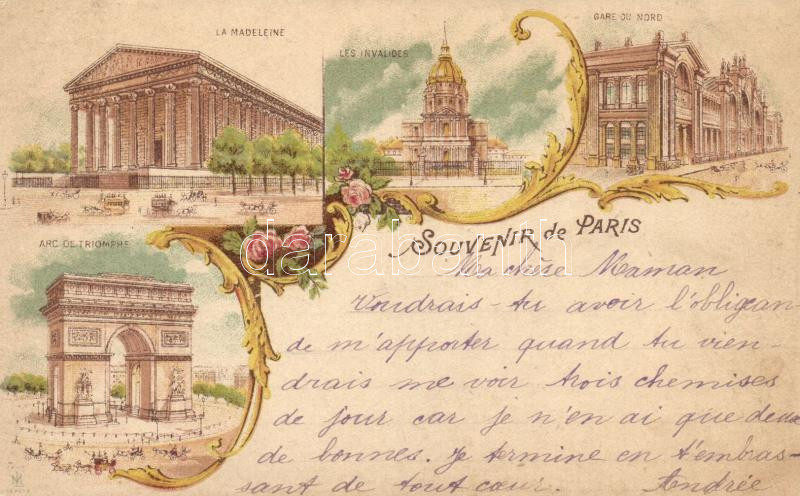 LA MADELEINE
LES INVALIDES
GARE DU NORD
ARC DE TRIOMPHE
SOUVENIR de PARIS
darabanth.com
Ma chère Maman
Voudrais-tu avoir l'obligean-
de m'apporter quand tu vien-
drais me voir trois chemises
de jour car je n'en ai que deux
de bonnes. Je termine en t'embras-
sant de tout cœur. Andrée